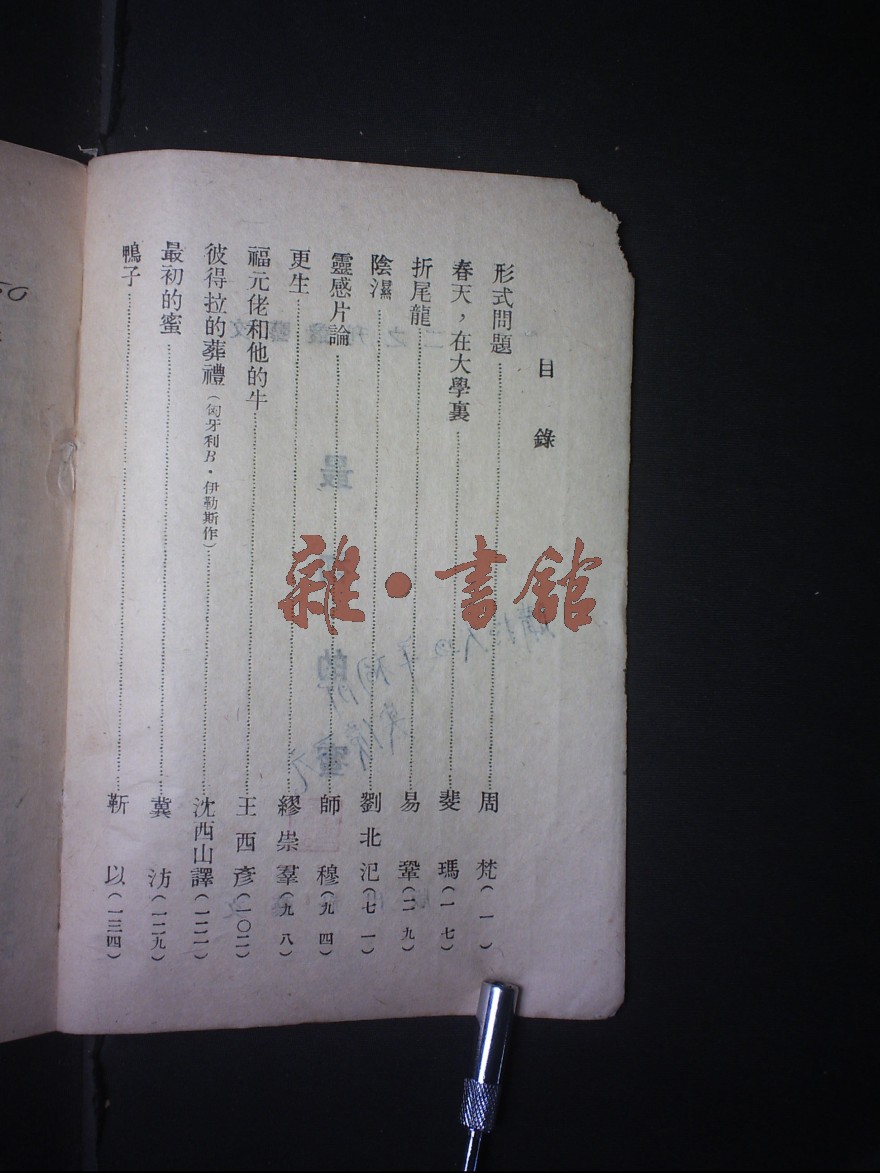 目錄
形式問題……周梵(一)
春天，在大學裏……斐瑪(一七)
折尾龍……易鞏(二九)
陰濕……劉北汜(七一)
靈感片論……師穆(九四)
更生……繆崇羣(九八)
福元佬和他的牛……王西彥(一〇二)
彼得拉的葬禮(匈牙利B·伊勒斯作)……沈西山譯(一二一)
最初的蜜……冀汸(一二九)
鴨子……靳以(一三四)
雜·書館